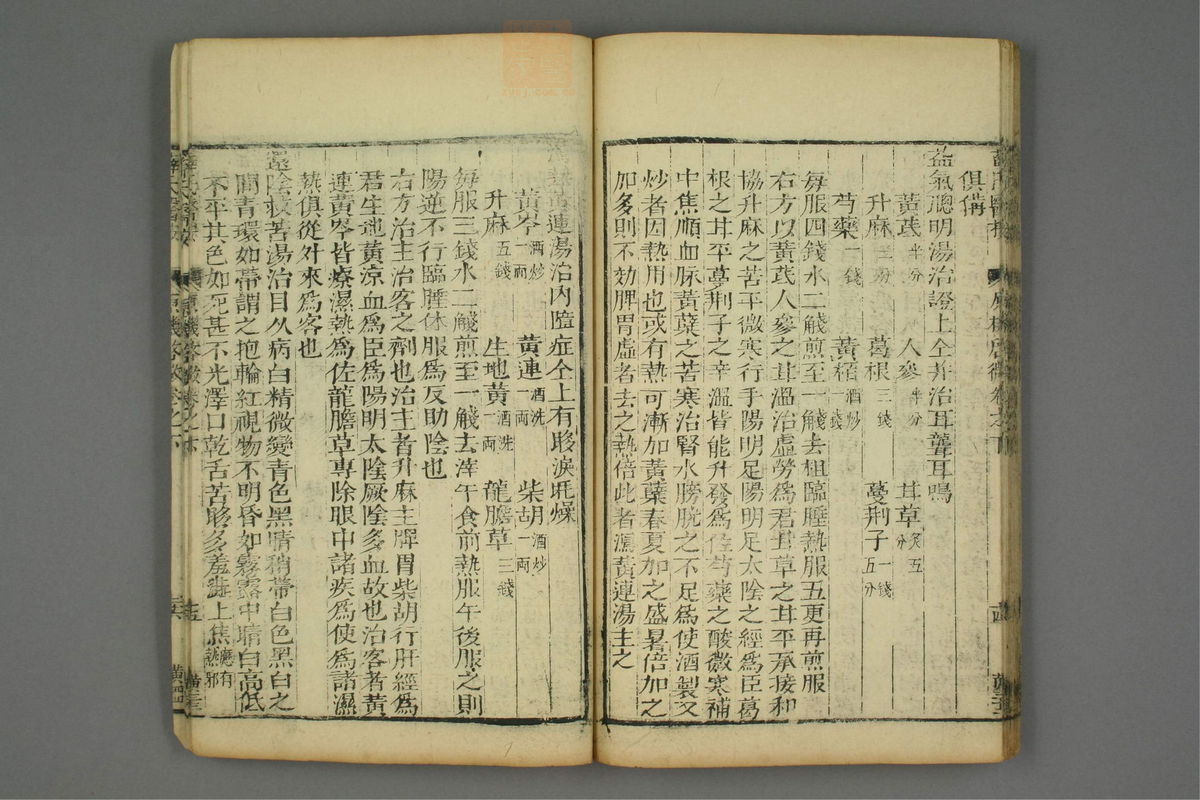 俱備
益氣聰明湯治證上仝并治耳聾耳鳴
黃芪半分 人參半分 甘草炙五分
升麻三分 葛根三錢 蔓荆子一錢五分
芍藥一錢 黃栢酒炒一錢
每服四錢水二觥煎至一觥去柤臨睡熱服五更再煎服
右方以黃芪人參之甘溫治虛勞爲君甘草之甘平承接和
協升麻之苦平微寒行手陽明足陽明足太陰之經爲臣葛
根之甘平蔓荆子之辛溫皆能升發爲佐芍藥之酸微寒補
中焦順血脉黃蘗之苦寒治腎水膀胱之不足爲使酒製又
炒者因熱用也或有熱可漸加黃蘗春夏加之盛暑倍加之
加多則不効脾胃虛者去之熱倍此者瀉黃連湯主之
黃連湯治內障症仝上有眵淚眊燥
黃芩酒炒一兩 黃連酒洗一兩 柴胡酒炒一兩
升麻五錢 生地黃酒洗一兩 龍膽草三錢
每服三錢水二觥煎至一觥去滓午食前熱服午後服之則
陽逆不行臨睡休服爲反助陰也
右方治主治客之劑也治主者升麻主脾胃柴胡行肝經爲
君生地黃涼血爲臣爲陽明太陰厥陰多血故也治客者黃
連黃芩皆療濕熱爲佐龍膽草專除眼中諸疾爲使爲諸濕
熱俱從外來爲客也
還陰救苦湯治目久病白精微變青色黑睛稍帶白色黑白之
間青環如帶謂之抱輪紅視物不明昏如霧露中睛白高低
不平其色如死甚不光澤口乾舌苦眵多羞澁上焦應有熱邪